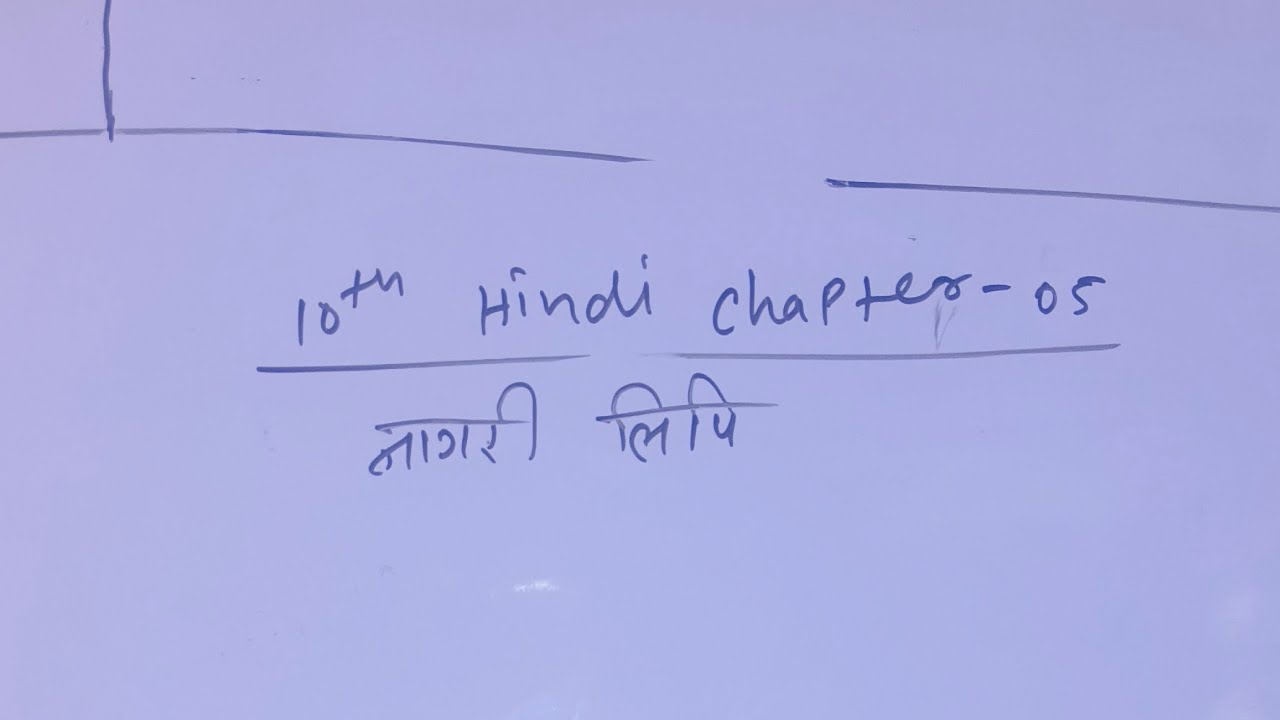 10th Hindi Chapter - 05
नागरी लिपि